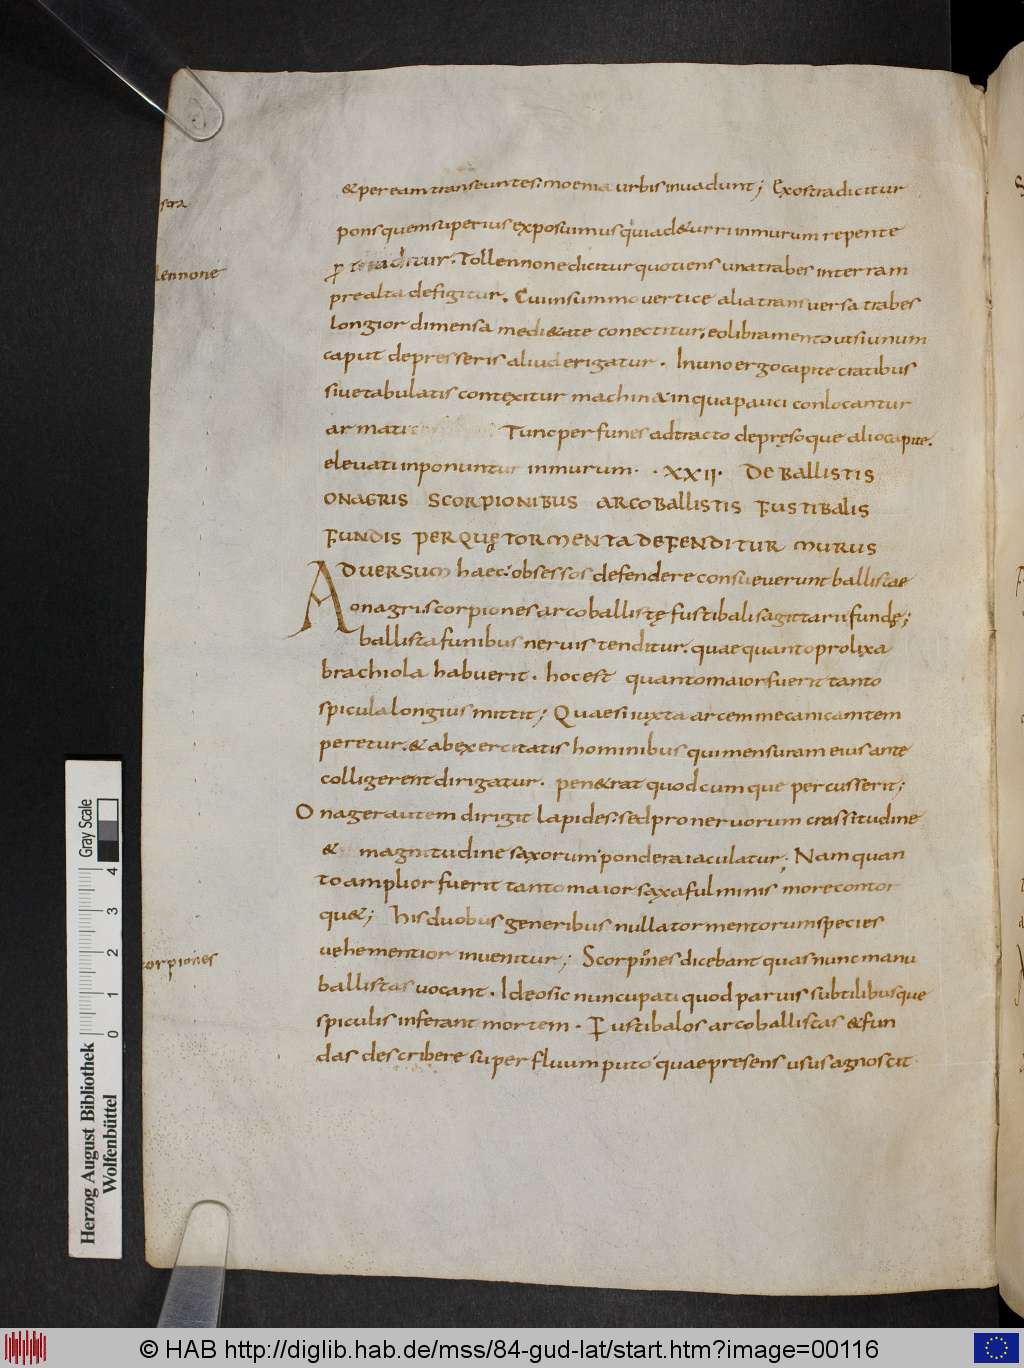 &pereamtranseuntesimoenia urbisinuadunt; Exostradicitur
ponsquemsuperiusexposuimus quiad&urrinmurum repente
Tollennonedicitur quotiens unatrabes interram
prealta defigitur. Cuiinsummouertice aliatransuersa trabes
longior dimensa medi&ate conectitur, eolibramentoutsiunum
caput depresseris aliuderigatur. Inunoergocapite cratibus
siuetabulatis contexitur machin&inquapauci conlocantur
armati Tuncperfunes adtracto depręsoque aliocapite.
eleuatiinponuntur inmurum. .XXII. DE BALLISTIS
ONAGRIS SCORPIONIBUS ARCOBALLISTIS FUSTIBALIS
FUNDIS PERQUĘTORMENTADEFENDITUR MURUS
ADUERSUM haec: obsessos defendere consueuerunt ballistae
onagriscorpionesarcoballistę fustibalisagittarii fundę;
ballistafunibus neruis tenditur. quaequantoprolixa
brachiola habuerit. hocest quantomaiorfuerit tanto
spiculalongius mittit; Quaesiiuxta artemmecanicamtem
peretur. & abexercitatis hominibus quimensuram eius ante
colligerent dirigatur. pen&rat quodcumque percusserit;
Onagerautem dirigit lapides. sedproneruorum crassitudine
& magnitudine saxorum ponderaiaculatur; Namquan
toamplior fuerit tantomaior saxafulminis morecontor
qu&; hisduobus generibus nullatormentorumspecies
uehementior inuenitur; Scorpiones dicebant quasnunc manu
ballistas uocant. Ideosic nuncupati quod paruis subtilibusque
spiculis inferant mortem. Fustibalos arcoballistas &fun
das describere superfluum puto quaepresens ususagnoscit.
lennone
corpiones
0 1 2 3 4
Gray Scale
Herzog August Bibliothek
Wolfenbüttel
© HAB http://diglib.hab.de/mss/84-gud-lat/start.htm?image=00116